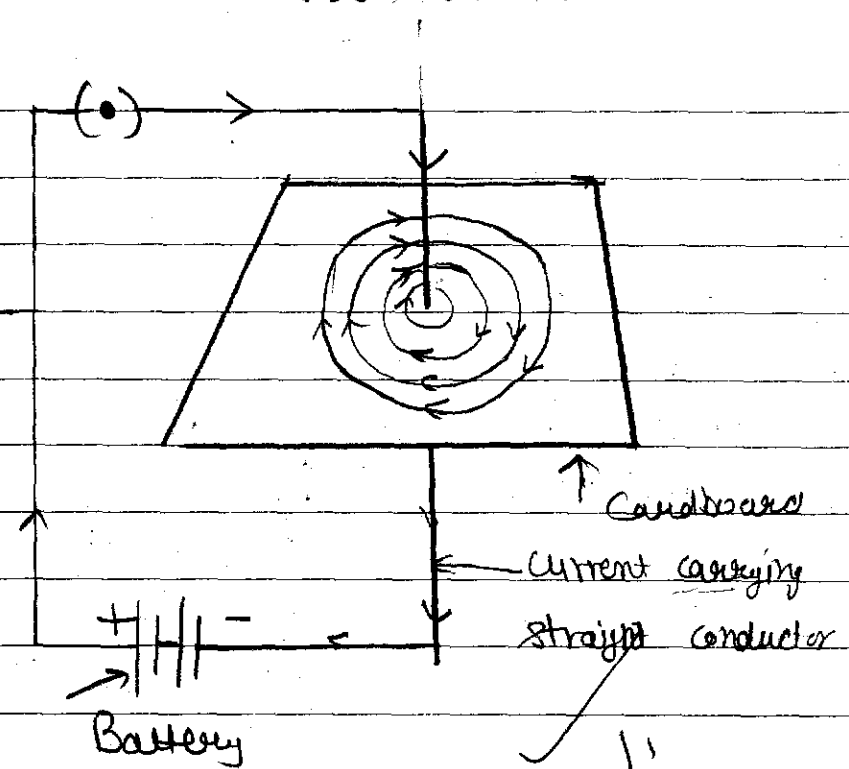 Cardboard
Current carrying
straight conductor
+ -
Battery